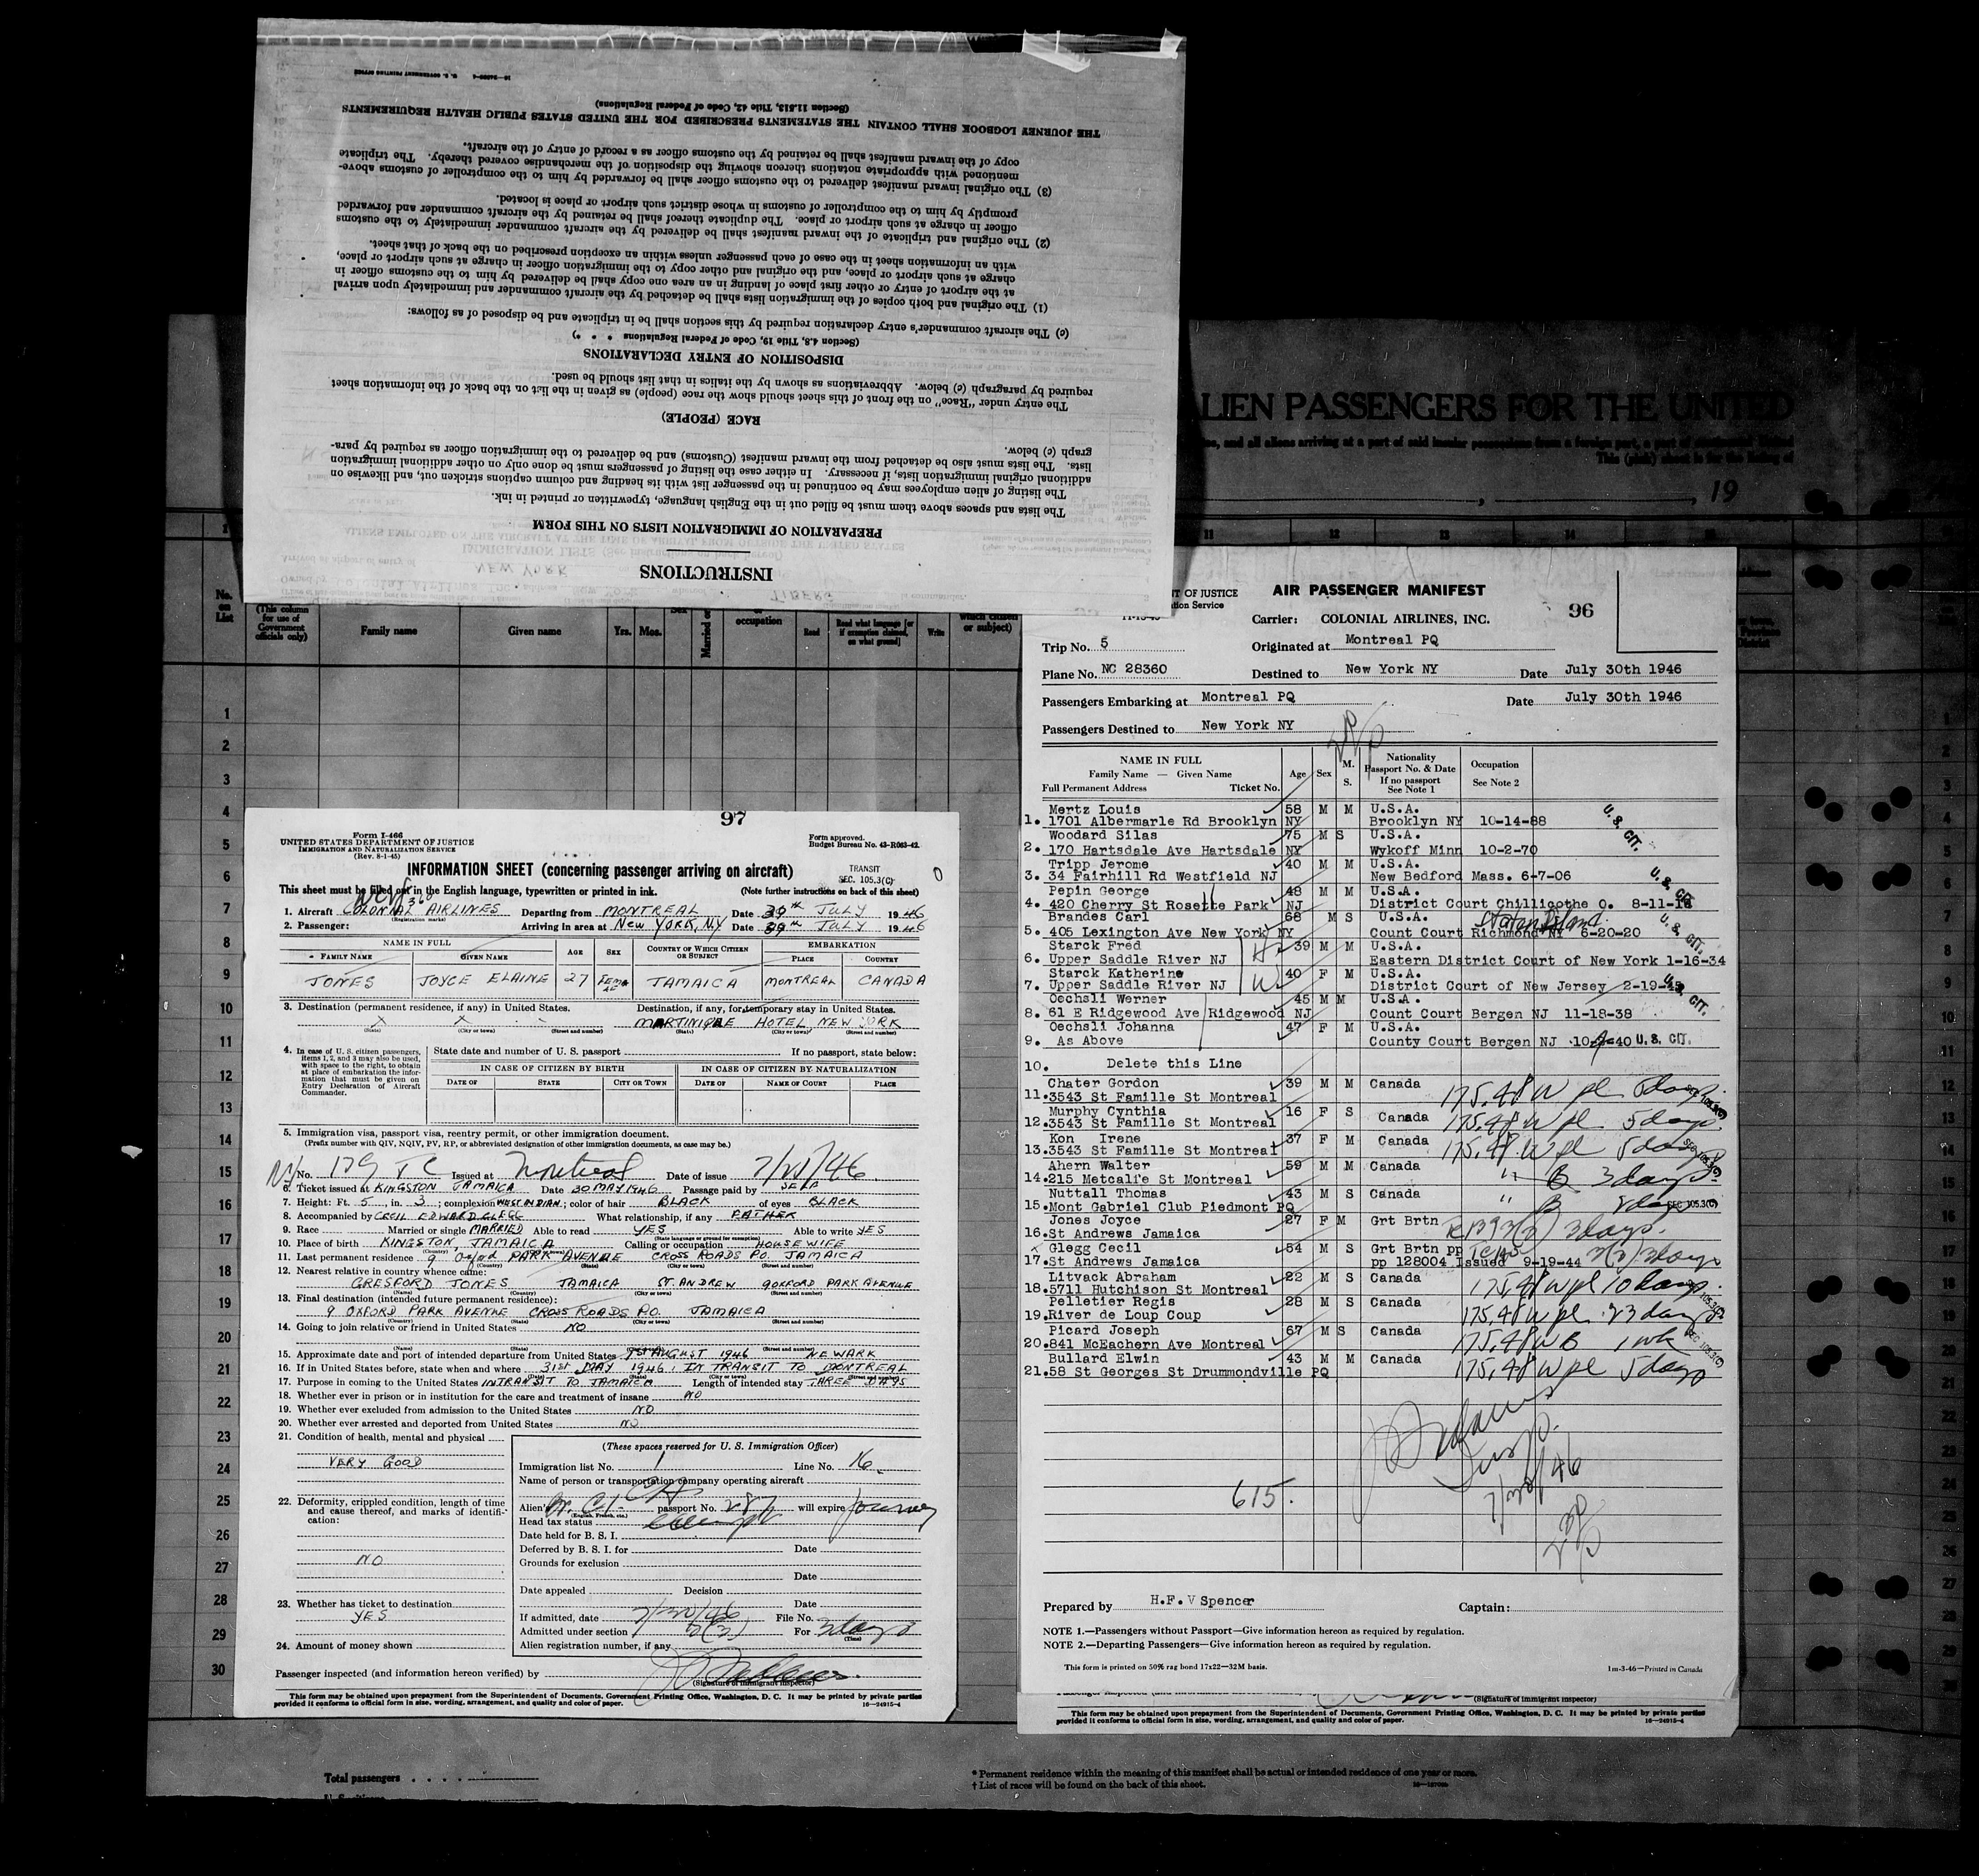 INSTRUCTIONS
PREPARATION OF IMMIGRATION LISTS ON THIS FORM
The lists and spaces above them must be filled out in the English language, typewritten or printed in ink.
The listing of alien employees may be continued in the passenger list with its heading and column captions stricken out, and likewise on
additional original immigration lists, if necessary. In either case the listing of passengers must be done only on other additional immigration
lists. The lists must also be detached from the inward manifest (Customs) and be delivered to the immigration officer as required by para-
graph (c) below.
RACE (PEOPLE)
The entry under "Race" on the front of this sheet should show the race (people) as given in the list on the back of the information sheet
required by paragraph (c) below. Abbreviations as shown by the italics in that list should be used.
DISPOSITION OF ENTRY DECLARATIONS
(Section 4.8, Title 19, Code of Federal Regulations * * *)
(c) The aircraft commander's entry declaration required by this section shall be in triplicate and be disposed of as follows:
(1) The original and both copies of the immigration lists shall be detached by the aircraft commander and immediately upon arrival
at the airport of entry or other first place of landing in an area one copy shall be delivered by him to the customs officer in
charge at such airport or place, and the original and other copy to the immigration officer in charge at such airport or place,
with an information sheet in the case of each passenger unless within an exception prescribed on the back of that sheet.
(2) The original and triplicate of the inward manifest shall be delivered by the aircraft commander immediately to the customs
officer in charge at such airport or place. The duplicate thereof shall be retained by the aircraft commander and forwarded
promptly by him to the comptroller of customs in whose district such airport or place is located.
(3) The original inward manifest delivered to the customs officer shall be forwarded by him to the comptroller of customs above-
mentioned with appropriate notations thereon showing the disposition of the merchandise covered thereby. The triplicate
copy of the inward manifest shall be retained by the customs officer as a record of entry of the aircraft.
THE JOURNEY LOGBOOK SHALL CONTAIN THE STATEMENTS PRESCRIBED FOR THE UNITED STATES PUBLIC HEALTH REQUIREMENTS
(Section 11.513, Title 42, Code of Federal Regulations)
U. S. GOVERNMENT PRINTING OFFICE
ALIEN PASSENGERS FOR THE UNITED
This (pink) sheet is for the listing of
, 19
11 12 13 14
No. on List
(This column for use of Government officials only)
Family name Given name Yrs. Mos. occupation Read Read what language [or if exemption claimed, on what ground] Write
or subject)
1
2
3
4
5
6
7
8
9
10
11
12
13
14
15
16
17
18
19
20
21
22
23
24
25
26
27
28
29
30
Total passengers . . . .
* Permanent residence within the meaning of this manifest shall be actual or intended residence of one year or more.
† List of races will be found on the back of this sheet.
97
Form I-466
UNITED STATES DEPARTMENT OF JUSTICE
IMMIGRATION AND NATURALIZATION SERVICE
(Rev. 8-1-45)
Form approved.
Budget Bureau No. 43-R063-42.
INFORMATION SHEET (concerning passenger arriving on aircraft)
TRANSIT
SEC. 105.3(C)
This sheet must be filled out in the English language, typewritten or printed in ink. (Note further instructions on back of this sheet)
1. Aircraft COLONIAL AIRLINES Departing from MONTREAL Date 30th JULY 1946
(Registration marks)
2. Passenger: Arriving in area at NEW YORK, N.Y Date 30th JULY 1946
NAME IN FULL AGE SEX COUNTRY OF WHICH CITIZEN OR SUBJECT EMBARKATION
FAMILY NAME GIVEN NAME PLACE COUNTRY
JONES JOYCE ELAINE 27 FEMALE JAMAICA MONTREAL CANADA
3. Destination (permanent residence, if any) in United States. Destination, if any, for temporary stay in United States.
X X - MARTINIQUE HOTEL NEW YORK
(State) (City or town) (Street and number) (State) (City or town) (Street and number)
4. In case of U. S. citizen passengers, items 1, 2, and 3 may also be used, with space to the right, to obtain at place of embarkation the information that must be given on Entry Declaration of Aircraft Commander.
State date and number of U. S. passport If no passport, state below:
IN CASE OF CITIZEN BY BIRTH IN CASE OF CITIZEN BY NATURALIZATION
DATE OF STATE CITY OR TOWN DATE OF NAME OF COURT PLACE
5. Immigration visa, passport visa, reentry permit, or other immigration document.
(Prefix number with QIV, NQIV, PV, RP, or abbreviated designation of other immigration documents, as case may be.)
No. 179 TC Issued at Montreal Date of issue
6. Ticket issued at KINGSTON JAMAICA Date 30 MAY 1946 Passage paid by SELF
7. Height: Ft. 5, in. 3; complexion WEST INDIAN; color of hair BLACK of eyes BLACK
8. Accompanied by CECIL EDWARD CLEGG What relationship, if any FATHER
9. Race Married or single MARRIED Able to read YES Able to write YES
(State language or ground for exemption)
10. Place of birth KINGSTON, JAMAICA Calling or occupation HOUSEWIFE
11. Last permanent residence 9 Oxford PARK AVENUE CROSS ROADS P.O. JAMAICA
(Country) (State) (City or town) (Street and number)
12. Nearest relative in country whence came:
GRESFORD JONES JAMAICA ST. ANDREW 9 OXFORD PARK AVENUE
(Name) (Country) (State) (City or town) (Street and number)
13. Final destination (intended future permanent residence):
9 OXFORD PARK AVENUE CROSS ROADS P.O. JAMAICA
(Country) (State) (City or town) (Street and number)
14. Going to join relative or friend in United States NO
(Name) (State) (City or town) (Street and number)
15. Approximate date and port of intended departure from United States 1ST AUGUST 1946 NEWARK
16. If in United States before, state when and where 31st MAY 1946. IN TRANSIT TO MONTREAL
17. Purpose in coming to the United States IN TRANSIT TO JAMAICA Length of intended stay THREE DAYS
18. Whether ever in prison or in institution for the care and treatment of insane NO
19. Whether ever excluded from admission to the United States NO
20. Whether ever arrested and deported from United States NO
21. Condition of health, mental and physical
VERY GOOD
22. Deformity, crippled condition, length of time and cause thereof, and marks of identification:
NO
23. Whether has ticket to destination
YES
24. Amount of money shown
(These spaces reserved for U. S. Immigration Officer)
Immigration list No. 1 Line No. 16
Name of person or transportation company operating aircraft
Alien's passport No. will expire
(English, French, etc.)
Head tax status
Date held for B. S. I.
Deferred by B. S. I. for Date
Grounds for exclusion
Date
Date appealed Decision
Date
If admitted, date 7/30/46 File No.
Admitted under section 3(3) For 3 days
(Time)
Alien registration number, if any
Passenger inspected (and information hereon verified) by
(Signature of immigrant inspector)
This form may be obtained upon prepayment from the Superintendent of Documents, Government Printing Office, Washington, D. C. It may be printed by private parties
provided it conforms to official form in size, wording, arrangement, and quality and color of paper. 16—24915-4
T OF JUSTICE
tion Service
AIR PASSENGER MANIFEST
96
Carrier: COLONIAL AIRLINES, INC.
Trip No. 5 Originated at Montreal PQ
Plane No. NC 28360 Destined to New York NY Date July 30th 1946
Passengers Embarking at Montreal PQ Date July 30th 1946
Passengers Destined to New York NY
NAME IN FULL
Family Name — Given Name
Full Permanent Address Ticket No.
Age Sex M. S. Nationality Passport No. & Date If no passport See Note 1 Occupation See Note 2
Mertz Louis 58 M M U.S.A.
1. 1701 Albermarle Rd Brooklyn NY Brooklyn NY 10-14-88
Woodard Silas 75 M S U.S.A.
2. 170 Hartsdale Ave Hartsdale NY Wykoff Minn 10-2-70
Tripp Jerome 40 M M U.S.A.
3. 34 Fairhill Rd Westfield NJ New Bedford Mass. 6-7-06
Pepin George 48 M M U.S.A.
4. 420 Cherry St Rosette Park NJ District Court Chillicothe O. 8-11-18
Brandes Carl 68 M S U.S.A. Staten Island.
5. 405 Lexington Ave New York NY Count Court Richmond NY 6-20-20
Starck Fred H 39 M M U.S.A.
6. Upper Saddle River NJ Eastern District Court of New York 1-16-34
Starck Katherine W 40 F M U.S.A.
7. Upper Saddle River NJ District Court of New Jersey 2-19-
Oechsli Werner 45 M M U.S.A.
8. 61 E Ridgewood Ave Ridgewood NJ Count Court Bergen NJ 11-18-38
Oechsli Johanna 47 F M U.S.A.
9. As Above County Court Bergen NJ U.S. CIT.
U.S. CIT.
U.S. CIT.
U.S. CIT.
U.S. CIT.
10. Delete this Line
Chater Gordon 39 M M Canada 175.48 W pl 5 days
11. 3543 St Famille St Montreal
Murphy Cynthia 16 F S Canada 175.48 W pl 5 days
12. 3543 St Famille St Montreal
Kon Irene 37 F M Canada 175.48 W pl 5 days
13. 3543 St Famille St Montreal
Ahern Walter 59 M M Canada " B 3 days
14. 215 Metcalfe St Montreal
Nuttall Thomas 43 M S Canada " B 8 days SEC 105.3(C)
15. Mont Gabriel Club Piedmont PQ
Jones Joyce 27 F M Grt Brtn 3(3) 3 days.
16. St Andrews Jamaica
Glegg Cecil 54 M S Grt Brtn pp 3(3) 3 days
17. St Andrews Jamaica pp 128004 Issued 9-19-44
Litvack Abraham 22 M S Canada 175.48 W pl 10 days
18. 5711 Hutchison St Montreal
Pelletier Regis 28 M S Canada 175.48 W pl 23 days
19. River de Loup Coup
Picard Joseph 67 M S Canada 175.48 W B 1 wk
20. 841 McEachern Ave Montreal
Bullard Elwin 43 M M Canada 175.48 W pl 5 days
21. 58 St Georges St Drummondville PQ
7/30/46
615.
Prepared by H.F.V Spencer Captain:
NOTE 1.—Passengers without Passport—Give information hereon as required by regulation.
NOTE 2.—Departing Passengers—Give information hereon as required by regulation.
This form is printed on 50% rag bond 17x22—32M basis. 1m-3-46—Printed in Canada
(Signature of immigrant inspector)
This form may be obtained upon prepayment from the Superintendent of Documents, Government Printing Office, Washington, D. C. It may be printed by private parties
provided it conforms to official form in size, wording, arrangement, and quality and color of paper. 16—24915-4